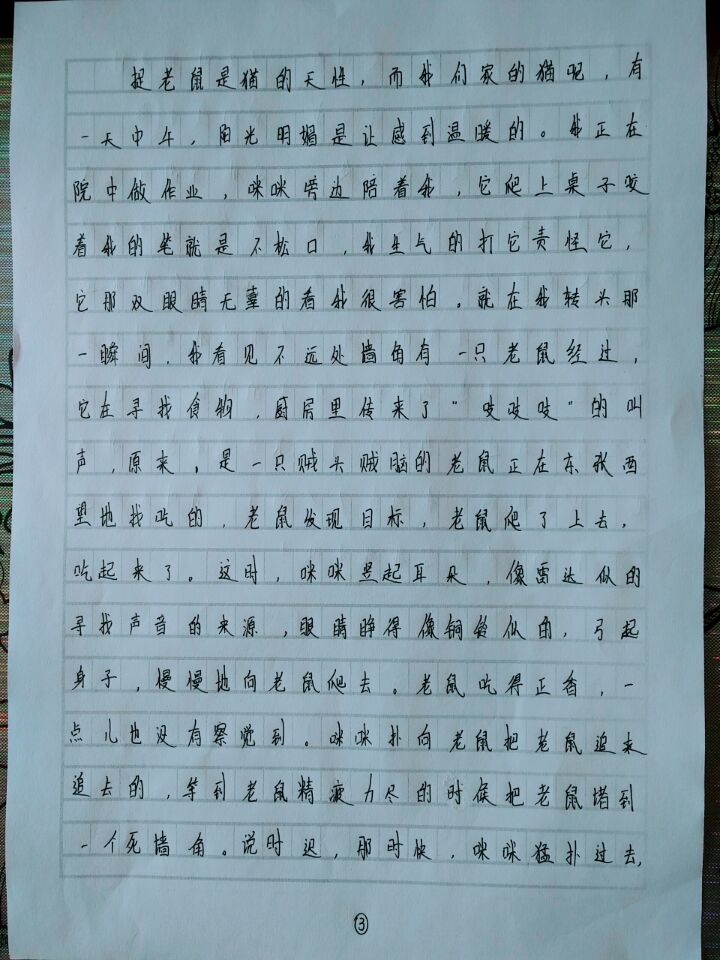 捉老鼠是猫的天性，而我们家的猫呢，有
一天中午，阳光明媚是让感到温暖的。我正在
院中做作业，咪咪旁边陪着我，它爬上桌子咬
着我的笔就是不松口，我生气的打它责怪它，
它那双眼睛无辜的看我很害怕。就在我转头那
一瞬间，我看见不远处墙角有一只老鼠经过，
它在寻找食物，厨房里传来了“吱吱吱”的叫
声，原来。是一只贼头贼脑的老鼠正在东张西
望地找吃的，老鼠发现目标，老鼠爬了上去，
吃起来了。这时，咪咪竖起耳朵，像雷达似的
寻找声音的来源，眼睛睁得像铜铃似的，弓起
身子，慢慢地向老鼠爬去。老鼠吃得正香，一
点儿也没有察觉到。咪咪扑向老鼠把老鼠追来
追去的，等到老鼠精疲力尽的时候把老鼠堵到
一个死墙角。说时迟，那时快，咪咪猛扑过去，
③